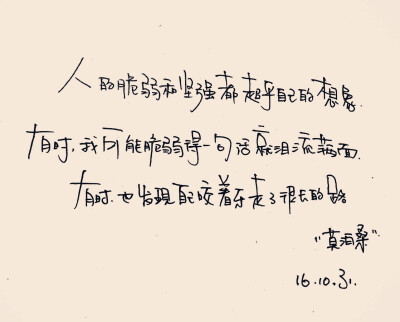 人的脆弱和坚强都超乎自己的想象.
有时,我可能脆弱得一句话就泪流满面.
有时.也发现自己咬着牙走了很长的路
"莫泊桑"
16.10.31.